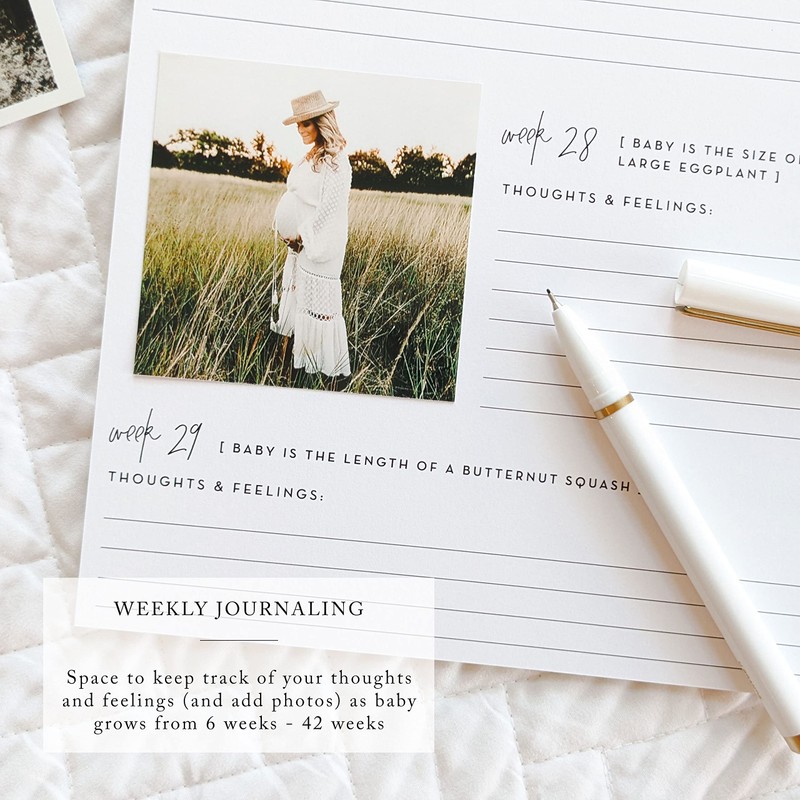 week 28 [ BABY IS THE SIZE
LARGE EGGPLANT ]
THOUGHTS & FEELINGS:
week 29 [ BABY IS THE LENGTH OF A BUTTERNUT SQUASH
THOUGHTS & FEELINGS:
WEEKLY JOURNALING
Space to keep track of your thoughts
and feelings (and add photos) as baby
grows from 6 weeks - 42 weeks